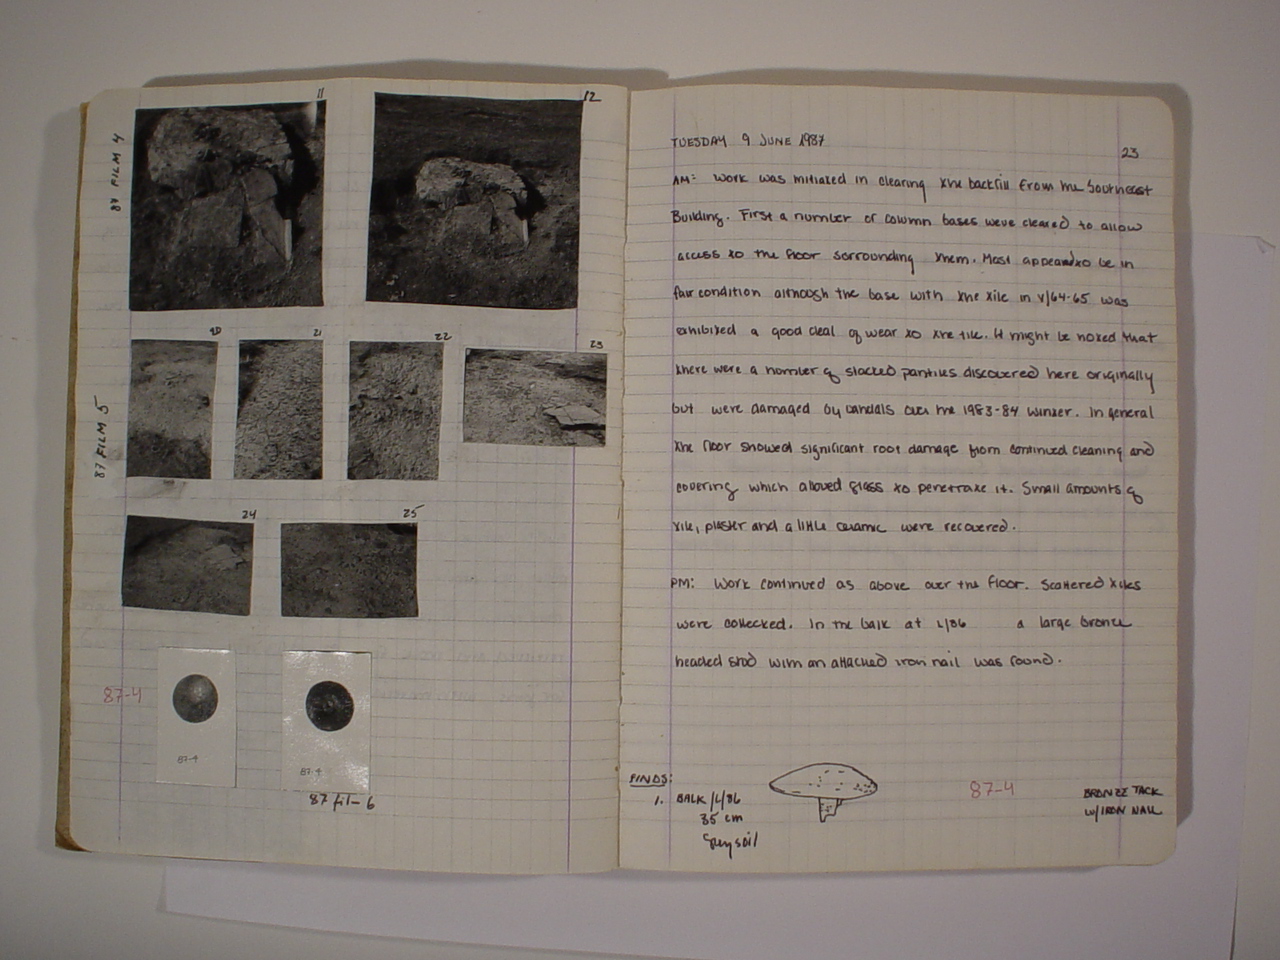 11
12
87 FILM 4
20
21
22
23
87 FILM 5
24
25
87-4
87-4
87-4
87 fil- 6
TUESDAY 9 JUNE 1987
23
AM: Work was initiated in clearing the backfill from the Southeast
Building. First a number of column bases were cleared to allow
access to the floor sorrounding them. Most appeared to be in
fair condition although the base with the tile in V/64-65 was
exhibited a good deal of wear to the tile. It might be noted that
there were a number of stacked pantiles discovered here originally
but were damaged by vandals over the 1983-84 winter. In general
the floor showed significant root damage from continued cleaning and
covering which allowed grass to penetrate it. Small amounts of
tile, plaster and a little ceramic were recovered.
PM: Work continued as above over the floor. Scattered tiles
were collected. In the balk at L/86 a large bronze
headed stud with an attached iron nail was found.
FINDS:
1. BALK /L/86
35 cm
Grey soil
87-4
BRONZE TACK
W/IRON NAIL